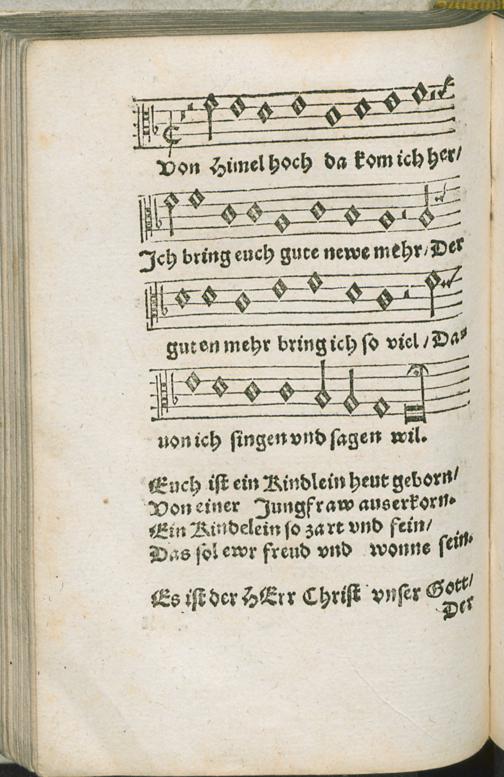 Von Himel hoch da kom ich her/
Ich bring euch gute newe mehr/Der
guten mehr bring ich so viel/Da⸗
uon ich singen vnd sagen wil.
Euch ist ein Kindlein heut geborn/
Von einer Jungfraw auserkorn.
Ein Kindelein so zart vnd fein/
Das sol ewr freud vnd wonne sein.
Es ist der HErr Christ vnser Gott/
Der